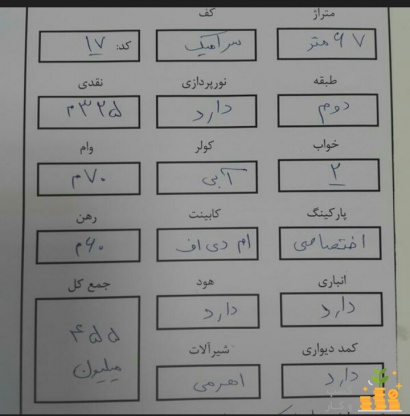 متراژ
۹۷ متر
کف
سرامیک
کد: ۱۷
طبقه
دوم
نورپردازی
دارد
نقدی
۳۲۵م
خواب
۲
کولر
آبی
وام
۷۰م
پارکینگ
اختصاصی
کابینت
ام دی اف
رهن
۶۰م
انباری
دارد
هود
دارد
جمع کل
۴۵۵
میلیون
کمد دیواری
دارد
شیرآلات
اهرمی